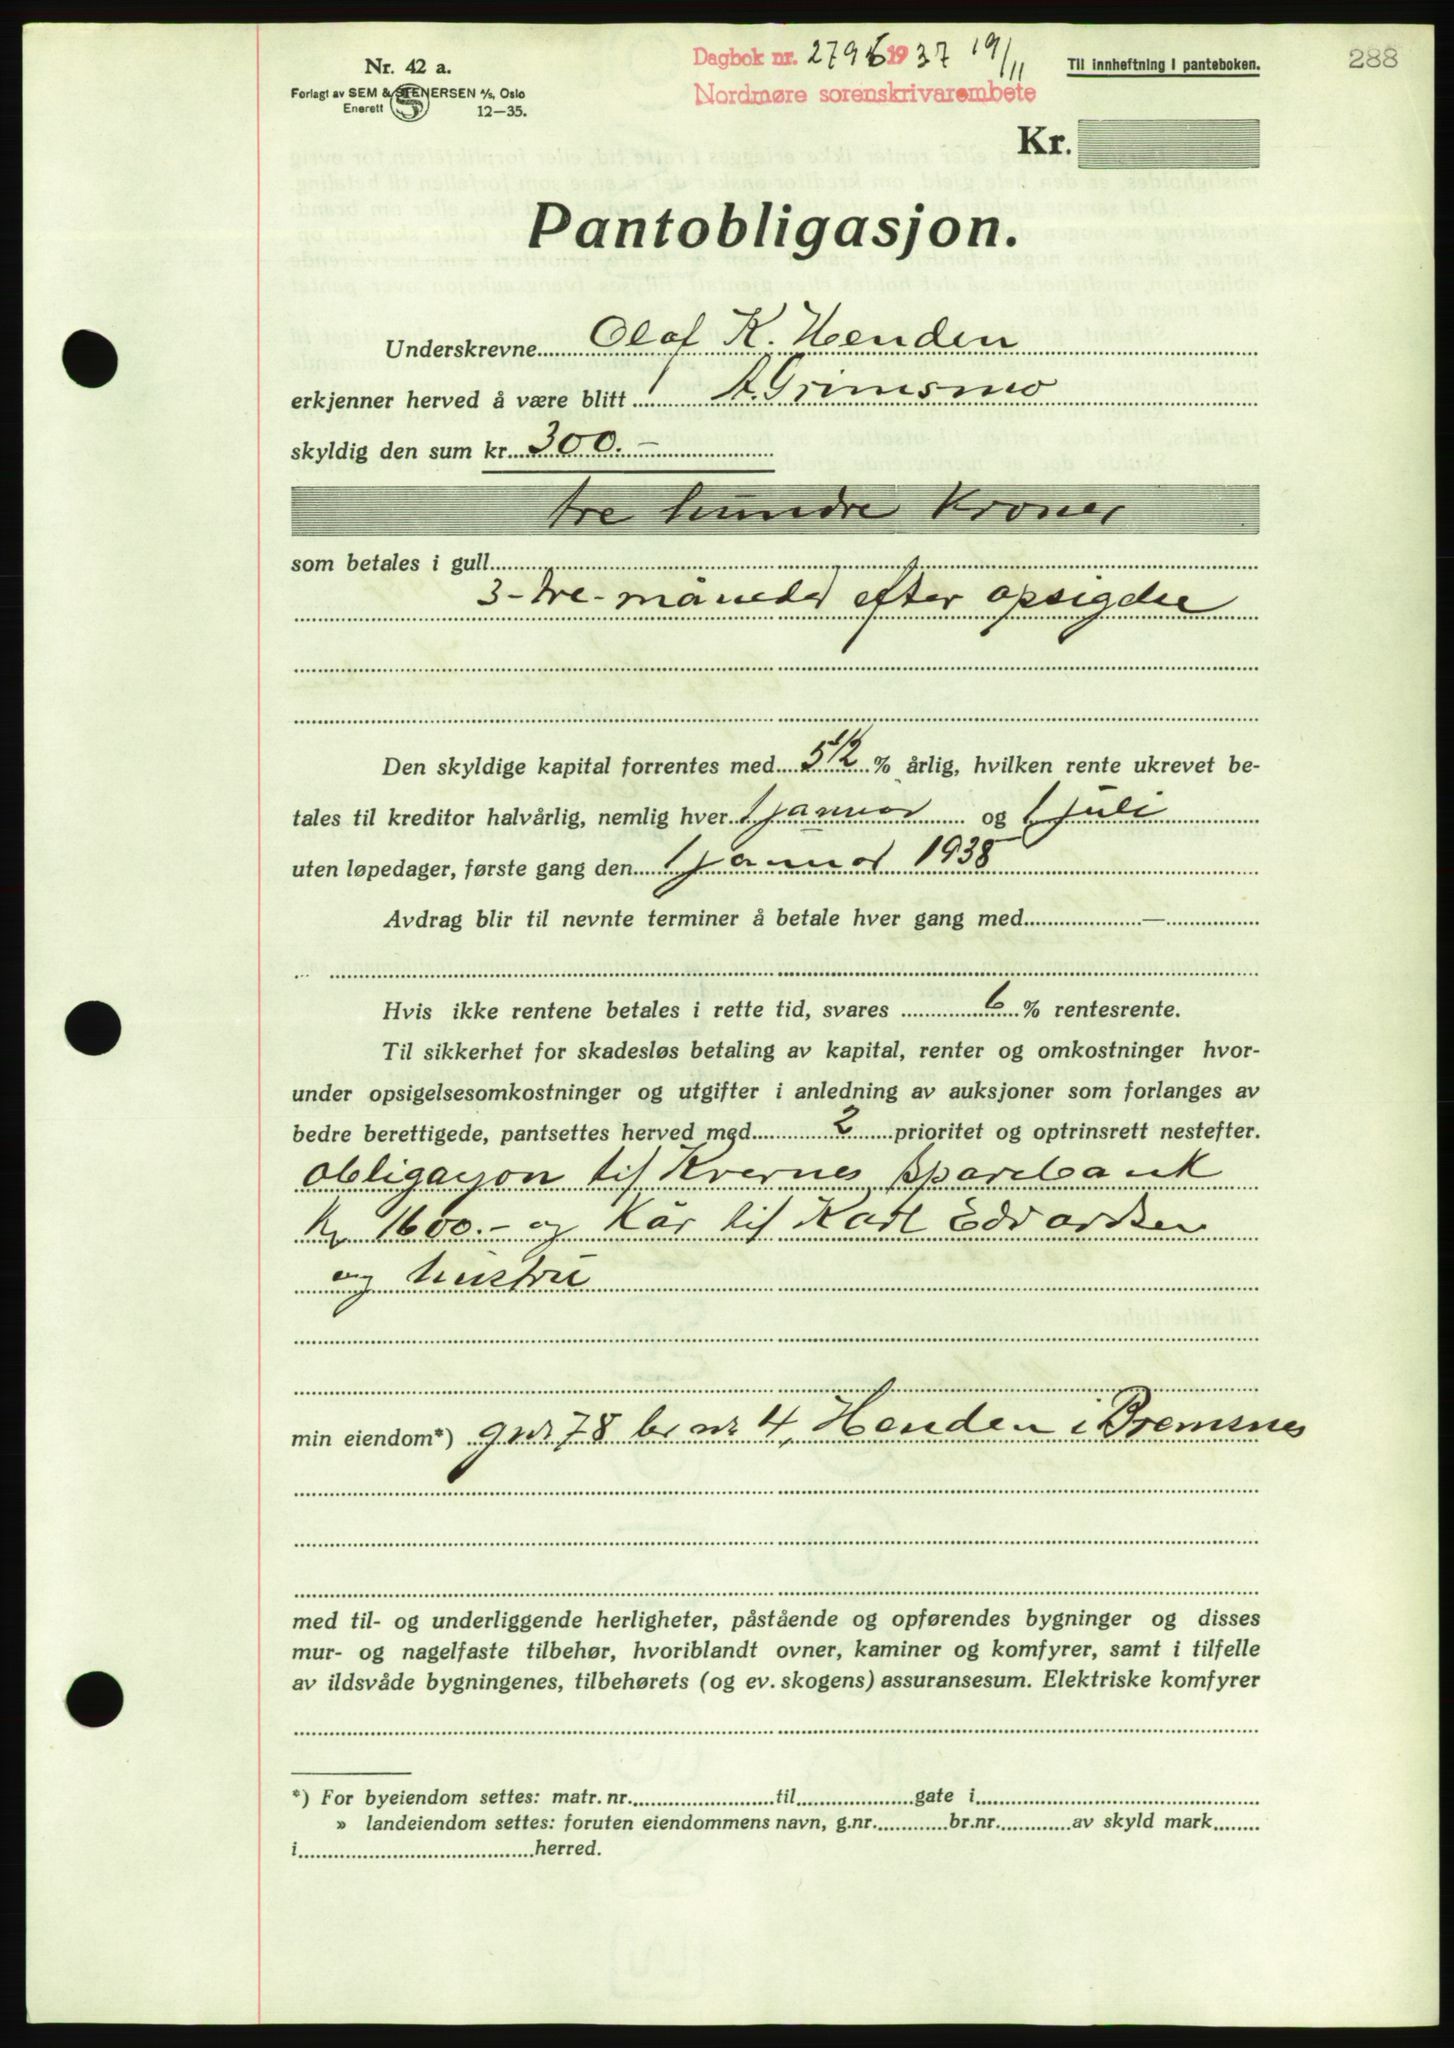 Nr. 42 a.
Forlagt av SEM & STENERSEN A/S, Oslo
Enerett 12—35.
Dagbok nr. 2796 1937 19/11
Nordmøre sorenskrivarembete
Til innheftning i panteboken.
288
Kr.
Pantobligasjon.
Underskrevne Olaf K. Henden
erkjenner herved å være blitt A. Grimsmo
skyldig den sum kr. 300.-
tre hundre kroner
som betales i gull
3-tre-måneder efter opsigelse
Den skyldige kapital forrentes med 5 1/2 % årlig, hvilken rente ukrevet be-
tales til kreditor halvårlig, nemlig hver 1 januar og 1 juli
uten løpedager, første gang den 1 januar 1938
Avdrag blir til nevnte terminer å betale hver gang med —
Hvis ikke rentene betales i rette tid, svares 6 % rentesrente.
Til sikkerhet for skadesløs betaling av kapital, renter og omkostninger hvor-
under opsigelsesomkostninger og utgifter i anledning av auksjoner som forlanges av
bedre berettigede, pantsettes herved med 2 prioritet og optrinsrett nestefter.
obligasjon til Kvernes sparebank
kr 1600.- og kår til Karl Edvardsen
og hustru
min eiendom*) gnr 78 br nr 4, Henden i Bremsnes
med til- og underliggende herligheter, påstående og opførendes bygninger og disses
mur- og nagelfaste tilbehør, hvoriblandt ovner, kaminer og komfyrer, samt i tilfelle
av ildsvåde bygningenes, tilbehørets (og ev. skogens) assuransesum. Elektriske komfyrer
*) For byeiendom settes: matr. nr. til gate i
» landeiendom settes: foruten eiendommens navn, g.nr. br.nr. av skyld mark
i herred.